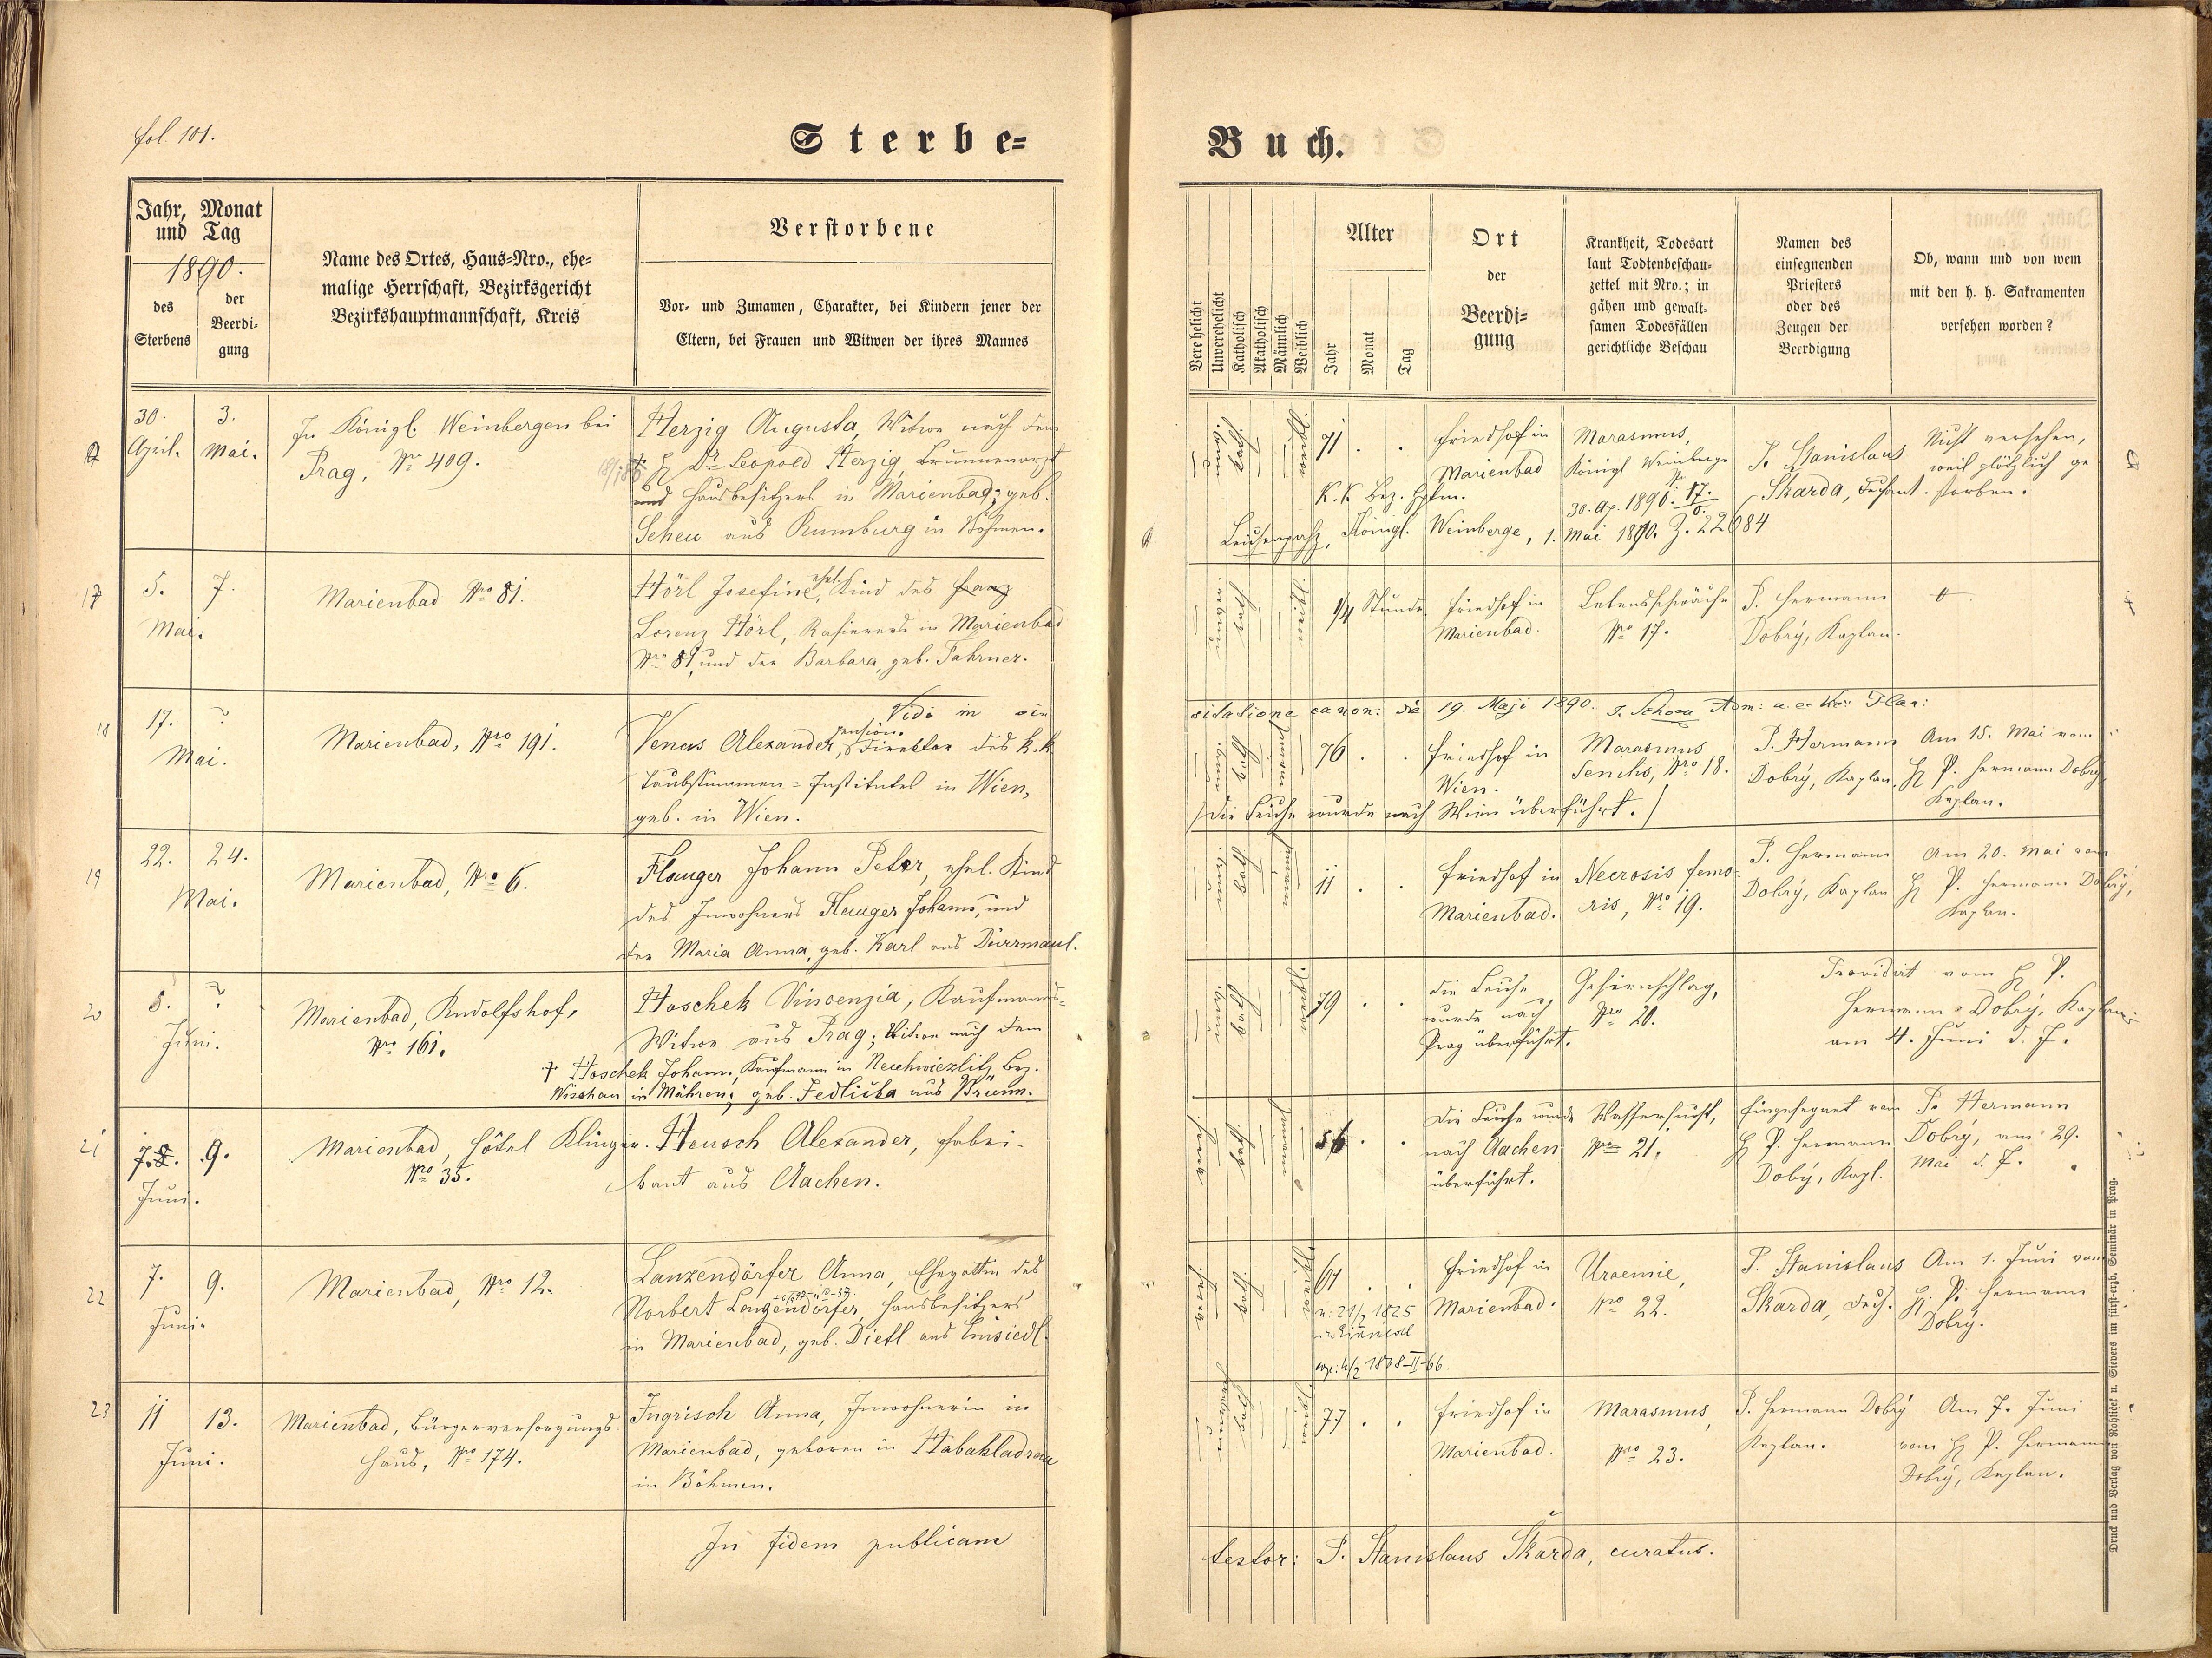 fol. 101.
Sterbe=
Buch.
Jahr, Monat
und Tag
1890.
des
Sterbens
der
Beerdi-
gung
Name des Ortes, Haus=Nro., ehe=
malige Herrschaft, Bezirksgericht
Bezirkshauptmannschaft, Kreis
Verstorbene
Vor- und Zunamen, Charakter, bei Kindern jener der
Eltern, bei Frauen und Witwen der ihres Mannes
Verehelicht
Unverehelicht
Katholisch
Akatholisch
Männlich
Weiblich
Alter
Jahr
Monat
Tag
Ort
der
Beerdi=
gung
Krankheit, Todesart
laut Todtenbeschau-
zettel mit Nro.; in
gähen und gewalt-
samen Todesfällen
gerichtliche Beschau
Namen des
einsegnenden
Priesters
oder des
Zeugen der
Beerdigung
Ob, wann und von wem
mit den h. h. Sakramenten
versehen worden?
30. April.
3. Mai.
In Königl. Weinbergen bei
Prag, Nro 409.
Herzig Augusta, Witwe nach dem
† H Dr. Leopold Herzig, Brunnenarzt
und Hausbesitzers in Marienbad; geb.
Scheu aus Rumburg in Böhmen.
71 . .
Friedhof in
Marienbad
Marasmus,
Königl Weinberge
30. Ap. 1890. 17.
P. Stanislaus
Skarda, Dechant.
Nicht versehen,
weil plötzlich ge
storben.
K. K. Bez. Hptm.
Leichenpaß, Königl. Weinberge, 1. Mai 1890. Z. 22684
17
5. 7.
Mai.
Marienbad Nro 81.
Hörl Josefine, ehel. Kind des Franz
Lorenz Hörl, Rasierers in Marienbad
Nro 81 und der Barbara, geb. Fahrner.
1/4 Stunde
Friedhof in
Marienbad.
Lebensschwäche
Nro 17.
P. Hermann
Dobrý, Kaplan.
Vidi in
sitatione canon: die 19. Maji 1890.
18
17. ?
Mai.
Marienbad, Nro 191.
Venus Alexander, pension. Direktor des k. k.
Taubstummen=Institutes in Wien,
geb. in Wien.
76 . .
Friedhof in
Wien.
Marasmus
Senilis, Nro 18.
P. Hermann
Dobrý, Kaplan.
Am 15. Mai vom
H P. Hermann Dobrý
Kaplan.
/ Die Leiche wurde nach Wien überführt. /
19
22. 24.
Mai.
Marienbad, Nro 6.
Flauger Johann Peter, ehel. Kind
des Inwohners Flauger Johann, und
der Maria Anna, geb. Karl aus Dürrmaul.
11 . .
Friedhof in
Marienbad.
Necrosis femo-
ris, Nro 19.
P. Hermann
Dobrý, Kaplan
Am 20. Mai vom
H P. Hermann Dobrý,
Kaplan.
20
5. ?
Juni.
Marienbad, Rudolfshof,
Nro 161.
Hoschek Vincenzia, Kaufmanns=
Witwe aus Prag; Witwe nach dem
† Hoschek Johann, Kaufmann in Neuhwiezlitz Bez.
Wischau in Mähren; geb. Jedlička aus Brünn.
79 . .
Die Leiche
wurde nach
Prag überführt.
Gehirnschlag,
Nro 20.
Providirt vom H P.
Hermann Dobrý, Kaplan.
am 4. Juni d. J.
21
7. 9.
Juni.
Marienbad, Hôtel Klinger.
Nro 35.
Heusch Alexander, Fabri-
kant aus Aachen.
56 . .
Die Leiche wurde
nach Aachen
überführt.
Wassersucht,
Nro 21.
Eingesegnet vom
H P. Hermann
Dobý, Kapl.
P. Hermann
Dobrý, am 29.
Mai d. J.
22
7. 9.
Juni.
Marienbad, Nro 12.
Lanzendörfer Anna, Ehegattin des
Norbert Lanzendörfer, Hausbesitzers
in Marienbad, geb. Dietl aus Einsiedl.
61 . .
Friedhof in
Marienbad.
Uraemie,
Nro 22.
P. Stanislaus
Skarda, Dech.
Am 1. Juni vom
H. P. Hermann
Dobrý.
23
11 13.
Juni.
Marienbad, Bürgerversorgungs
haus, Nro 174.
Ingrisch Anna, Inwohnerin in
Marienbad, geboren in Habakladrau
in Böhmen.
77 . .
Friedhof in
Marienbad.
Marasmus,
Nro 23.
P. Hermann Dobrý
Kaplan.
Am 7. Juni
vom H P. Hermann
Dobrý, Kaplan.
In fidem publicam
testor: P. Stanislaus Škarda, curatus.
Druck und Verlag von Rohliček u. Sievers im fürst-erzb. Seminär in Prag.